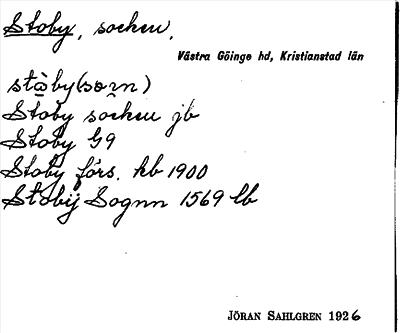 Stoby, socken,
Västra Göinge hd, Kristianstad län
stǡby (sɷ̄rn)
Stoby socken jb
Stoby G9
Stoby förs. kb 1900
Stobij Sognn 1569 lb
JÖRAN SAHLGREN 1926